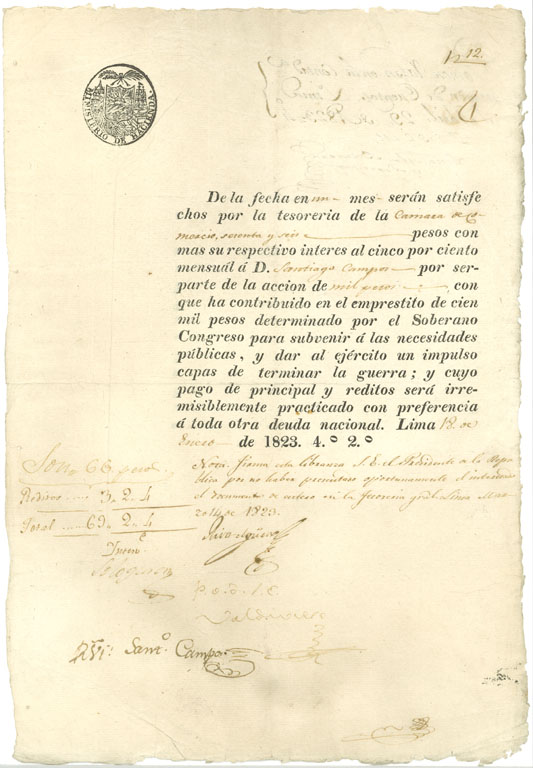 12.
MINISTERIO DE HACIENDA.
De la fecha en un mes serán satisfe
chos por la tesoreria de la Camara de Co-
mercio, sesenta y seis pesos con
mas su respectivo interes al cinco por ciento
mensuál á D. Santiago Campos por ser-
parte de la accion de mil pesos con
que ha contribuido en el emprestito de cien
mil pesos determinado por el Soberano
Congreso para subvenir á las necesidades
públicas, y dar al ejército un impulso
capas de terminar la guerra; y cuyo
pago de principal y reditos será irre-
misiblemente practicado con preferencia
á toda otra deuda nacional. Lima 18 de
Enero de 1823. 4.º 2.º
Son 66 pesos.
Reditos 3. 2. 4
Total 69. 2. 4
Nota. firma esta libranza S. E. el Presidente de la Repu
blica por no haber permitido oportunamente el interesado
el documento de entero en la Tesoreria gral. Lima Mar
zo 14 de 1823.
Riva-Agüero
P. O. D. S. E.
Valdivieso
Rví: Sant.º Campos